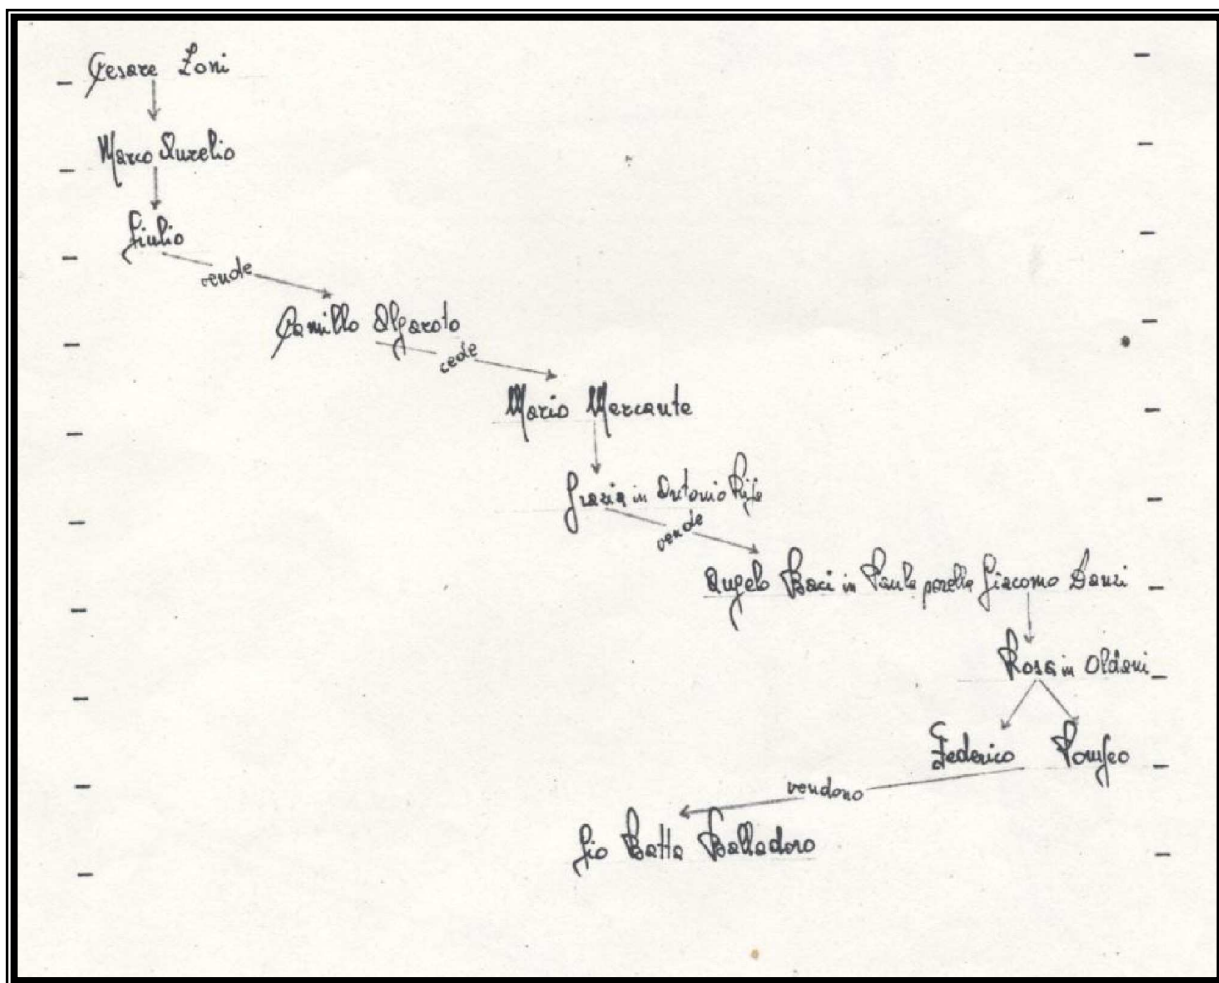 Cesare Zoni
Marco Aurelio
Giulio
vende
Camillo Algaroto
cede
Mario Mercante
Grazia in Antonio
vende
Angelo Baci in Paula Giacomo Danzi
Rosa in Oldani
Federico Pompeo
vendono
Gio Batta Balladoro